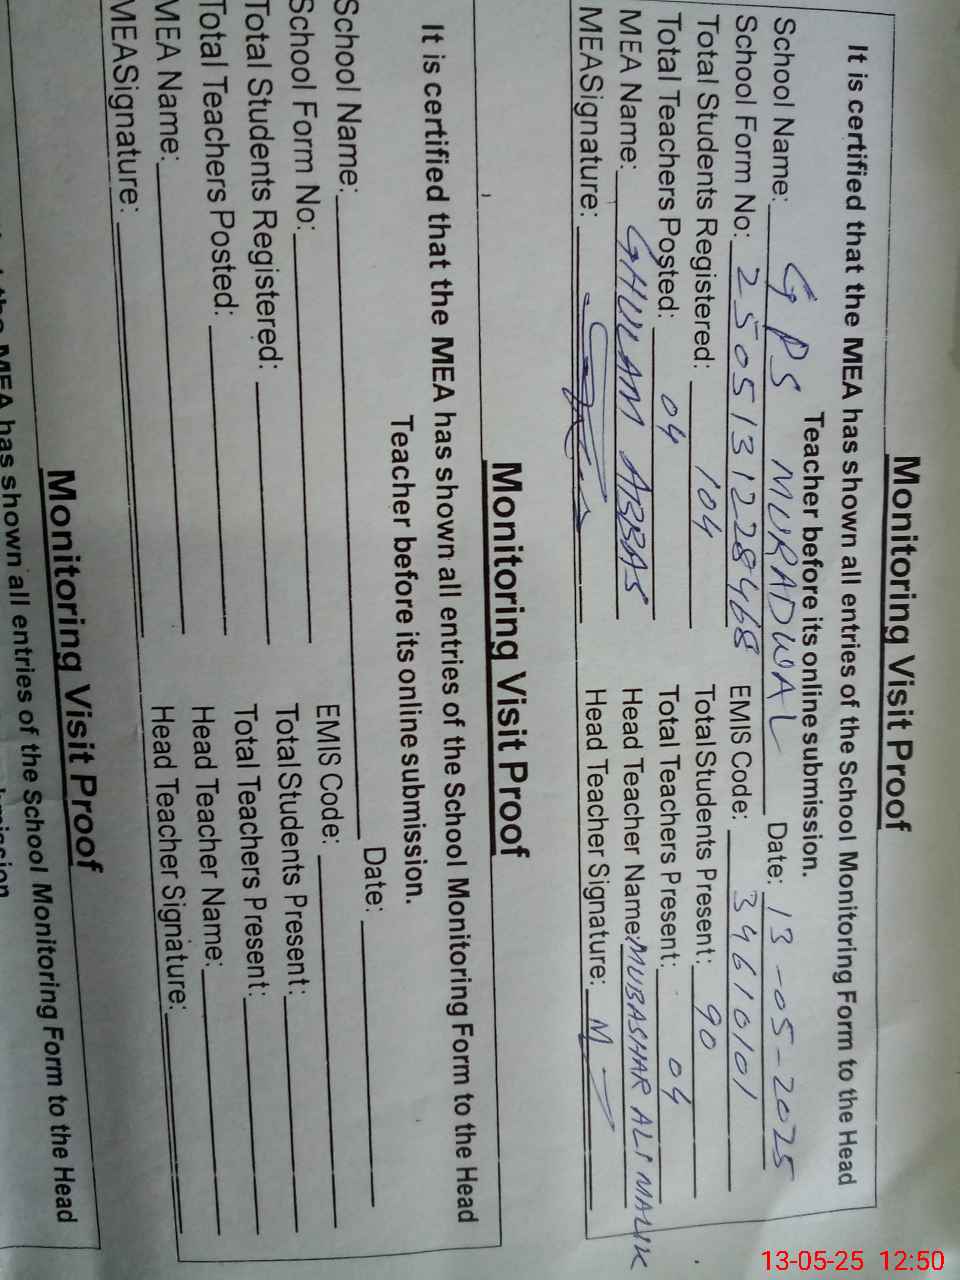 Monitoring Visit Proof
It is certified that the MEA has shown all entries of the School Monitoring Form to the Head
Teacher before its online submission.
School Name: GPS MURADWAL Date: 13-05-2025
School Form No: 2505131228468 EMIS Code: 34610101
Total Students Registered: 104 Total Students Present: 90
Total Teachers Posted: 04 Total Teachers Present: 04
MEA Name: GHULAM ABBAS Head Teacher Name: MUBASHAR ALI MALIK
MEASignature: Head Teacher Signature:
Monitoring Visit Proof
It is certified that the MEA has shown all entries of the School Monitoring Form to the Head
Teacher before its online submission.
School Name: Date:
School Form No: EMIS Code:
Total Students Registered: Total Students Present:
Total Teachers Posted: Total Teachers Present:
MEA Name: Head Teacher Name:
MEASignature: Head Teacher Signature:
Monitoring Visit Proof
the MEA has shown all entries of the School Monitoring Form to the Head
13-05-25 12:50